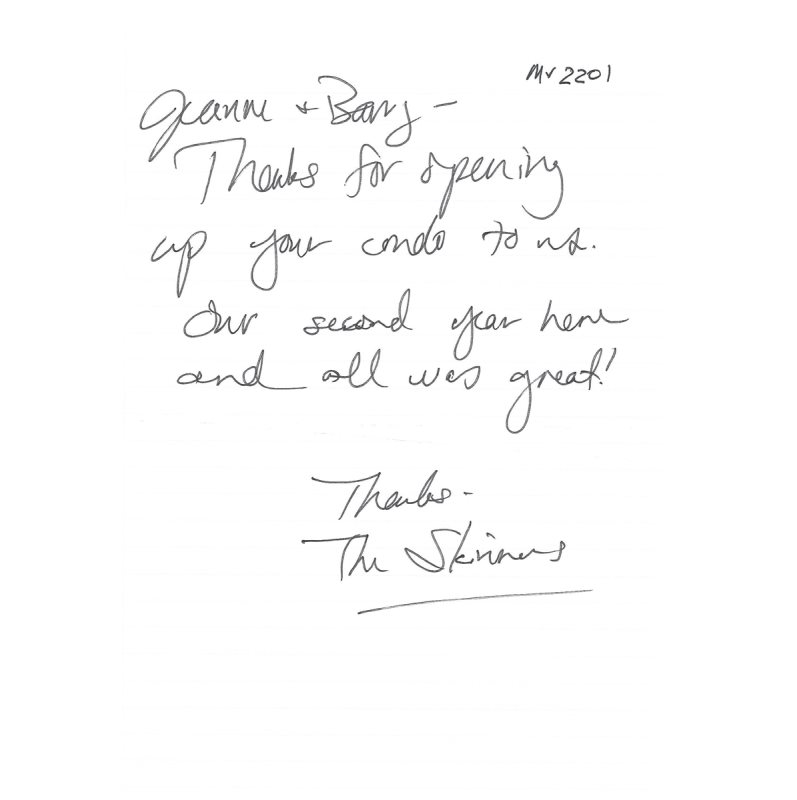 MV 2201
Jeanne + Barry –
Thanks for opening
up your condo to us.
Our second year here
and all was great!
Thanks –
The Skinners